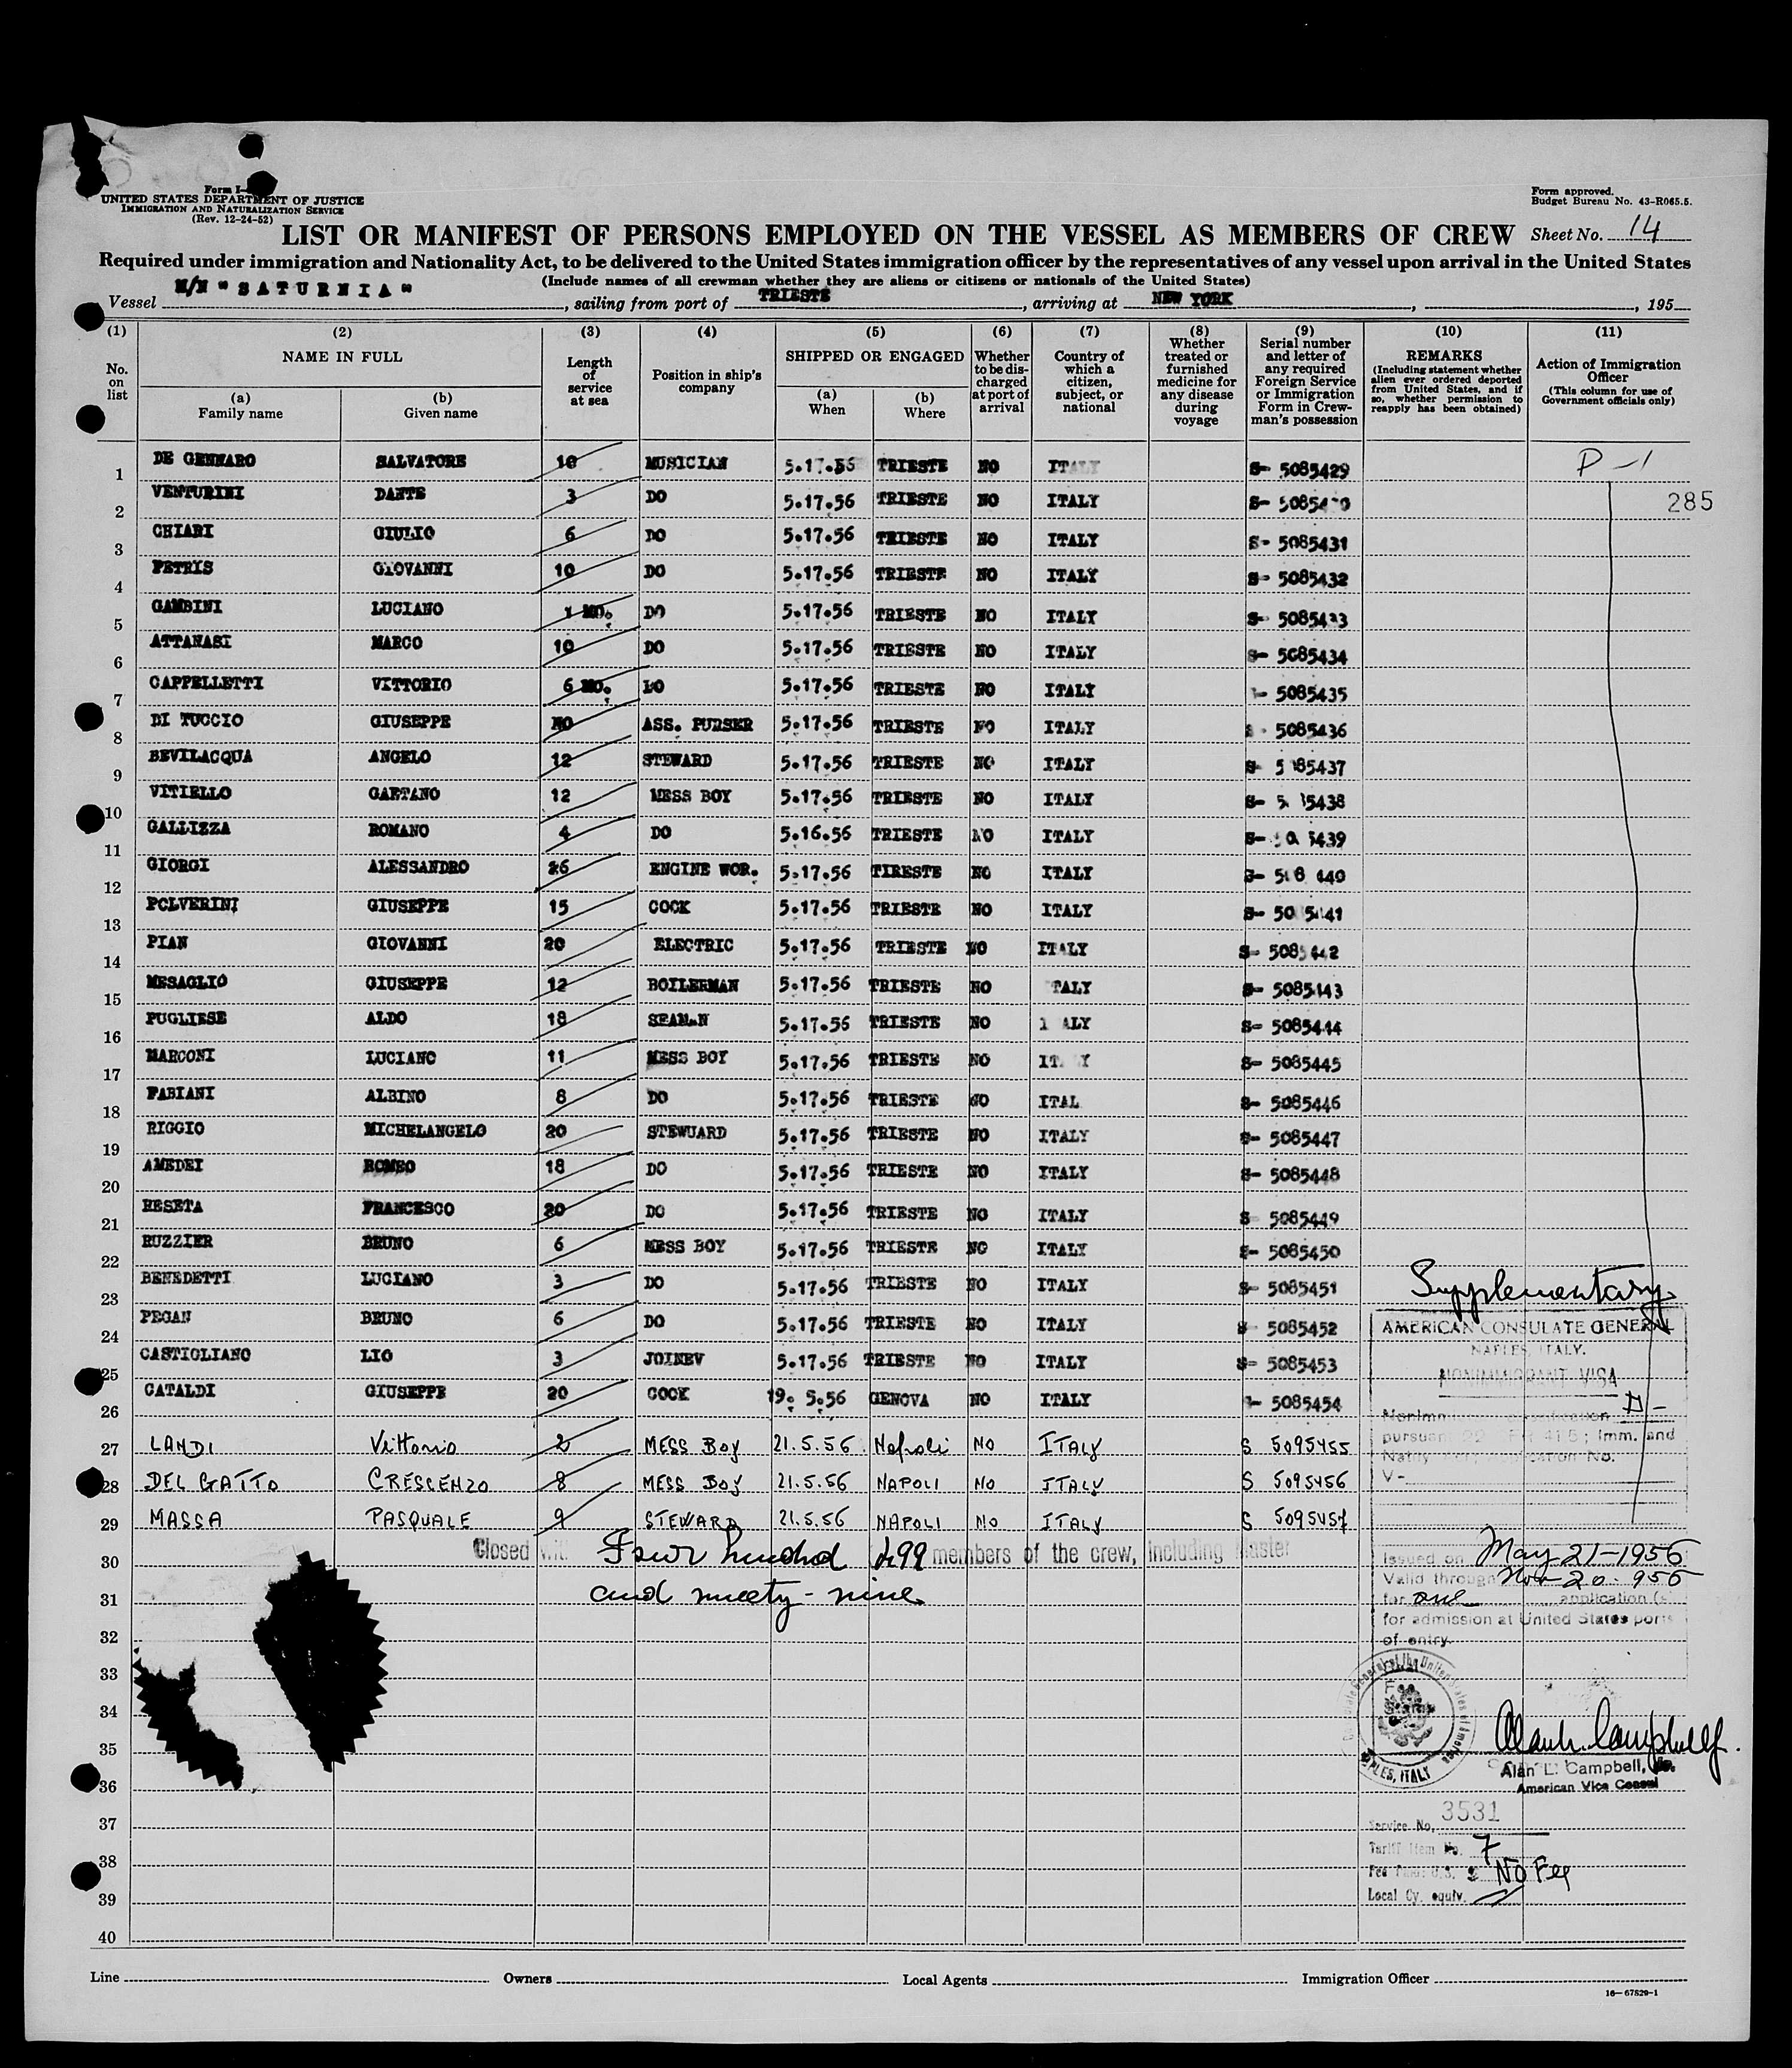 Form I-
UNITED STATES DEPARTMENT OF JUSTICE
IMMIGRATION AND NATURALIZATION SERVICE
(Rev. 12-24-52)
Form approved.
Budget Bureau No. 43-R065.5.
LIST OR MANIFEST OF PERSONS EMPLOYED ON THE VESSEL AS MEMBERS OF CREW Sheet No. 14
Required under immigration and Nationality Act, to be delivered to the United States immigration officer by the representatives of any vessel upon arrival in the United States
(Include names of all crewman whether they are aliens or citizens or nationals of the United States)
Vessel M/N "SATURNIA", sailing from port of TRIESTE, arriving at NEW YORK, , 195
(1) (2) (3) (4) (5) (6) (7) (8) (9) (10) (11)
No. on list
NAME IN FULL
(a) Family name
(b) Given name
Length of service at sea
Position in ship's company
SHIPPED OR ENGAGED
(a) When
(b) Where
Whether to be discharged at port of arrival
Country of which a citizen, subject, or national
Whether treated or furnished medicine for any disease during voyage
Serial number and letter of any required Foreign Service or Immigration Form in Crewman's possession
REMARKS
(Including statement whether alien ever ordered deported from United States, and if so, whether permission to reapply has been obtained)
Action of Immigration Officer
(This column for use of Government officials only)
1 DE GENNARO SALVATORE 10 MUSICIAN 5.17.56 TRIESTE NO ITALY S- 5085429 P-1
2 VENTURINI DANTE 3 DO 5.17.56 TRIESTE NO ITALY 285
3 CHIARI GIULIO 6 DO 5.17.56 TRIESTE NO ITALY S- 5085431
4 PETRIS GIOVANNI 10 DO 5.17.56 TRIESTE NO ITALY S- 5085432
5 GAMBINI LUCIANO 1 MO. DO 5.17.56 TRIESTE NO ITALY S- 5085433
6 ATTANASI MARCO 10 DO 5.17.56 TRIESTE NO ITALY S- 5085434
7 CAPPELLETTI VITTORIO 6 MO. DO 5.17.56 TRIESTE NO ITALY 5085435
8 DI TUCCIO GIUSEPPE NO ASS. PURSER 5.17.56 TRIESTE NO ITALY 5085436
9 BEVILACQUA ANGELO 12 STEWARD 5.17.56 TRIESTE NO ITALY S- 5 85437
10 VITIELLO GAETANO 12 MESS BOY 5.17.56 TRIESTE NO ITALY S- 5 5438
11 GALLIZZA ROMANO 4 DO 5.16.56 TRIESTE NO ITALY S- 5439
12 GIORGI ALESSANDRO 26 ENGINE WOR. 5.17.56 TIRESTE NO ITALY S- 508 440
13 POLVERINI GIUSEPPE 15 COCK 5.17.56 TRIESTE NO ITALY S- 50 5441
14 PIAN GIOVANNI 20 ELECTRIC 5.17.56 TRIESTE NO ITALY S- 5085442
15 MESAGLIO GIUSEPPE 12 BOILERMAN 5.17.56 TRIESTE NO TALY S- 5085443
16 PUGLIESE ALDO 18 SEAMAN 5.17.56 TRIESTE NO I ALY S- 5085444
17 MARCONI LUCIANO 11 MESS BOY 5.17.56 TRIESTE NO IT Y S- 5085445
18 FABIANI ALBINO 8 DO 5.17.56 TRIESTE NO ITAL S- 5085446
19 RIGGIO MICHELANGELO 20 STEWUARD 5.17.56 TRIESTE NO ITALY S- 5085447
20 AMEDEI ROMEO 18 DO 5.17.56 TRIESTE NO ITALY S- 5085448
21 RESETA FRANCESCO 20 DO 5.17.56 TRIESTE NO ITALY S 5085449
22 RUZZIER BRUNO 6 MESS BOY 5.17.56 TRIESTE NO ITALY S- 5085450
23 BENEDETTI LUCIANO 3 DO 5.17.56 TRIESTE NO ITALY S- 5085451
24 PEGAN BRUNO 6 DO 5.17.56 TRIESTE NO ITALY S 5085452
25 CASTIGLIANO LIO 3 JOINEV 5.17.56 TRIESTE NO ITALY S- 5085453
26 CATALDI GIUSEPPE 20 COCK 19. 5.56 GENOVA NO ITALY S- 5085454
27 LANDI Vittorio 2 MESS Boy 21.5.56 Napoli NO ITALY S 5095455
28 DEL GATTO CRESCENZO 8 MESS Boy 21.5.56 NAPOLI NO ITALY S 5095456
29 MASSA PASQUALE 9 STEWARD 21.5.56 NAPOLI NO ITALY S 5095457
30 Closed with Four hundred 499 members of the crew, including Master
31 and ninety-nine
32
33
34
35
36
37
38
39
40
Supplementary
AMERICAN CONSULATE GENERAL
NAPLES, ITALY.
NONIMMIGRANT VISA
D-
pursuant 22 CFR 41.5; Imm. and
Application No.
V-
Issued on May 21-1956
Valid through Nov 20. 956
for one application(s
for admission at United States ports
of entry.
NAPLES, ITALY
Alan L. Campbell Jr.
Alan L. Campbell, Jr.
American Vice Consul
Service No. 3531
Tariff Item No. 7
Fee No Fee
Local Cy. equiv.
Line Owners Local Agents Immigration Officer
16—67829-1